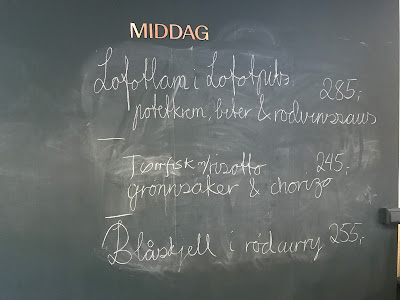 MIDDAG
Lofotlam i Lofotpils 285,-
potetkrem, beter & rødvinssaus
Tørrfisk m/risotto 245,-
grønnsaker & chorizo
Blåskjell i rød curry 255,-